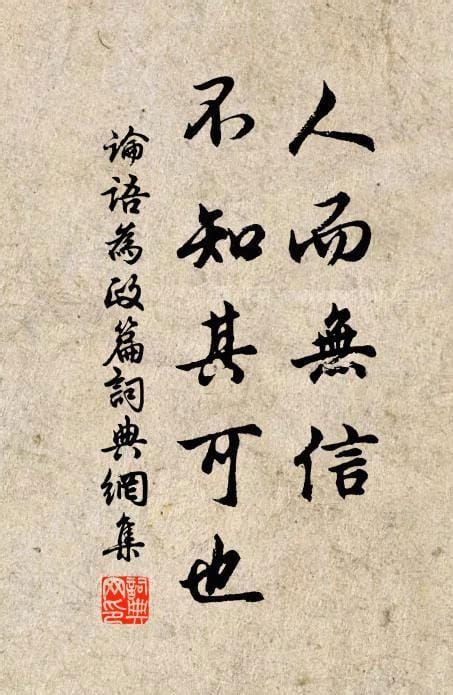 人而無信
不知其可也
論語為政篇詞典網集
詞典
网印